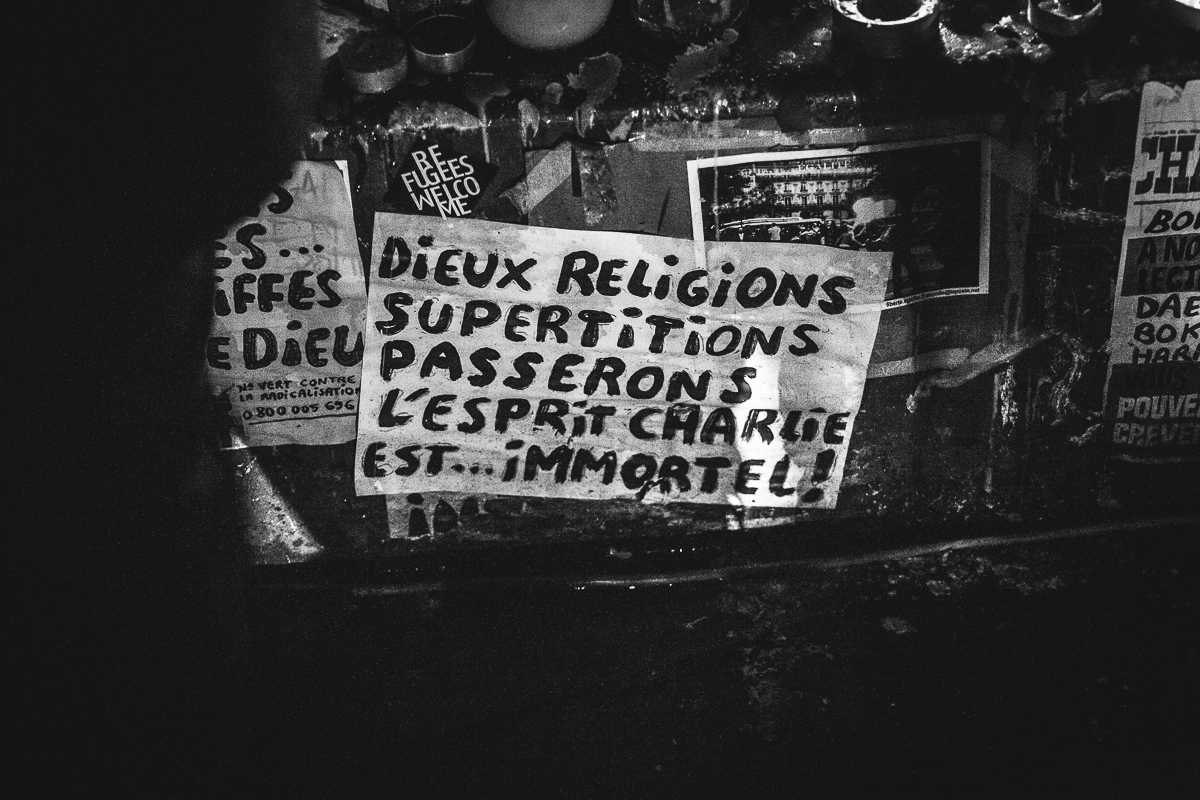 RE
FUGEES
WELCO
ME
ES...
iFFES
E DiEU
N° VERT CONTRE
LA RADiCALiSATiON
0 800 005 696
DiEUX RELiGiONS
SUPERTiTiONS
PASSERONS
L'ESPRiT CHARLiE
EST...iMMORTEL!
CHA
BO
A NO
LECT
DAE
BOK
HARA
VOUS
POUVE
CREVE